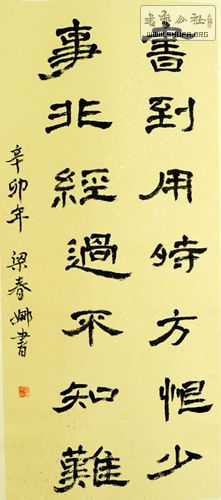 書到用時方恨少
事非經過不知難
辛卯年 梁春娜書
WWW.SHUFA.ORG